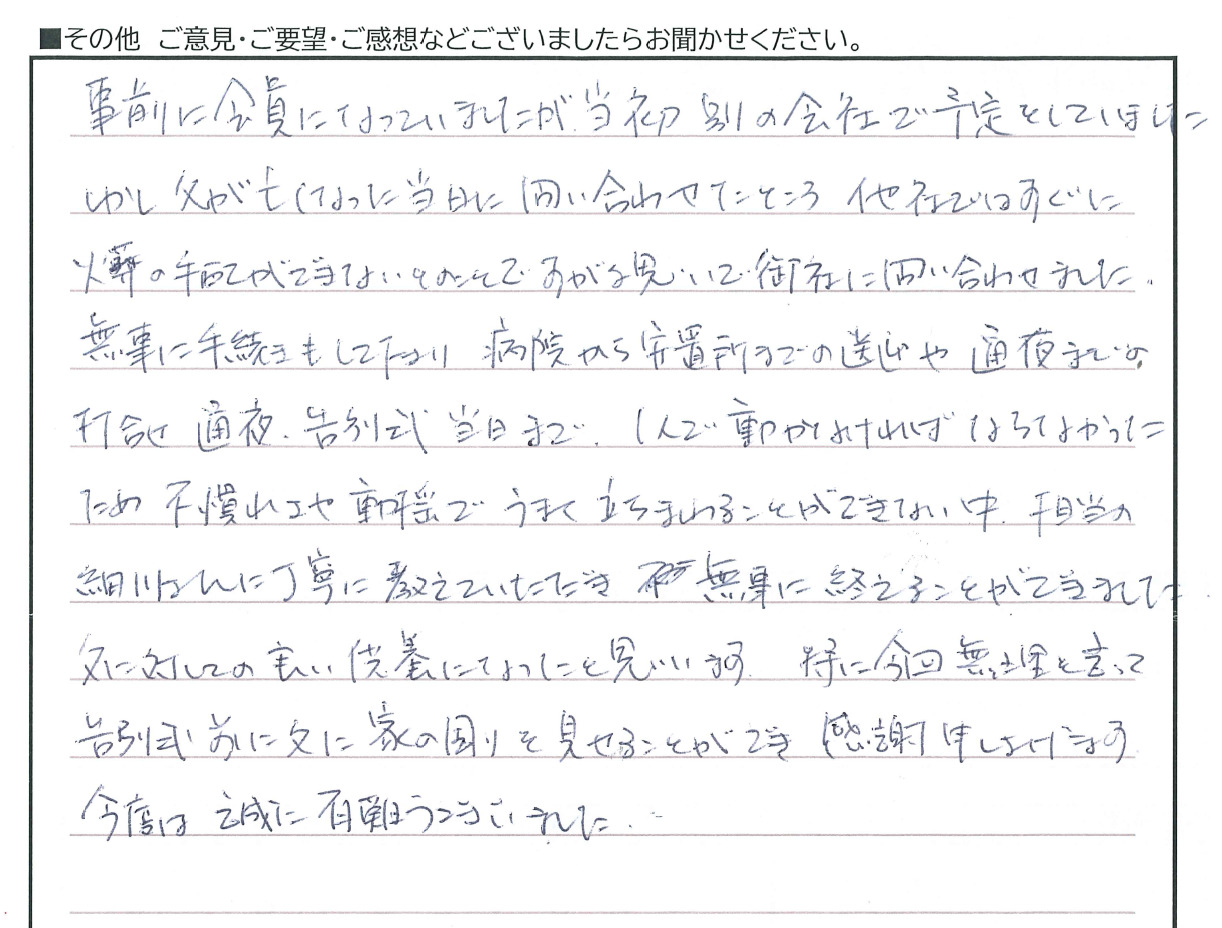 ■その他 ご意見・ご要望・ご感想などございましたらお聞かせください。
事前に会員になっていましたが、当初別の会社で予定をしていました
しかし父が亡くなった当日に問い合わせたところ 他社ではすぐに
火葬の手配ができないとのことですがる思いで御社に問い合わせました。
無事に手続きもして下さり 病院から安置所までの送迎や通夜までの
打合せ 通夜、告別式 当日まで、1人で動かなければならなかった
ため 不慣れさや動揺でうまく立ちまわることができない中、担当の
細川さんに丁寧に教えていただき 無事に終えることができました
父に対しての良い供養になったと思います 特に今回無理を言って
告別式前に父に家の周りを見せることができ 感謝申し上げます
今度は 誠に有難うございました。